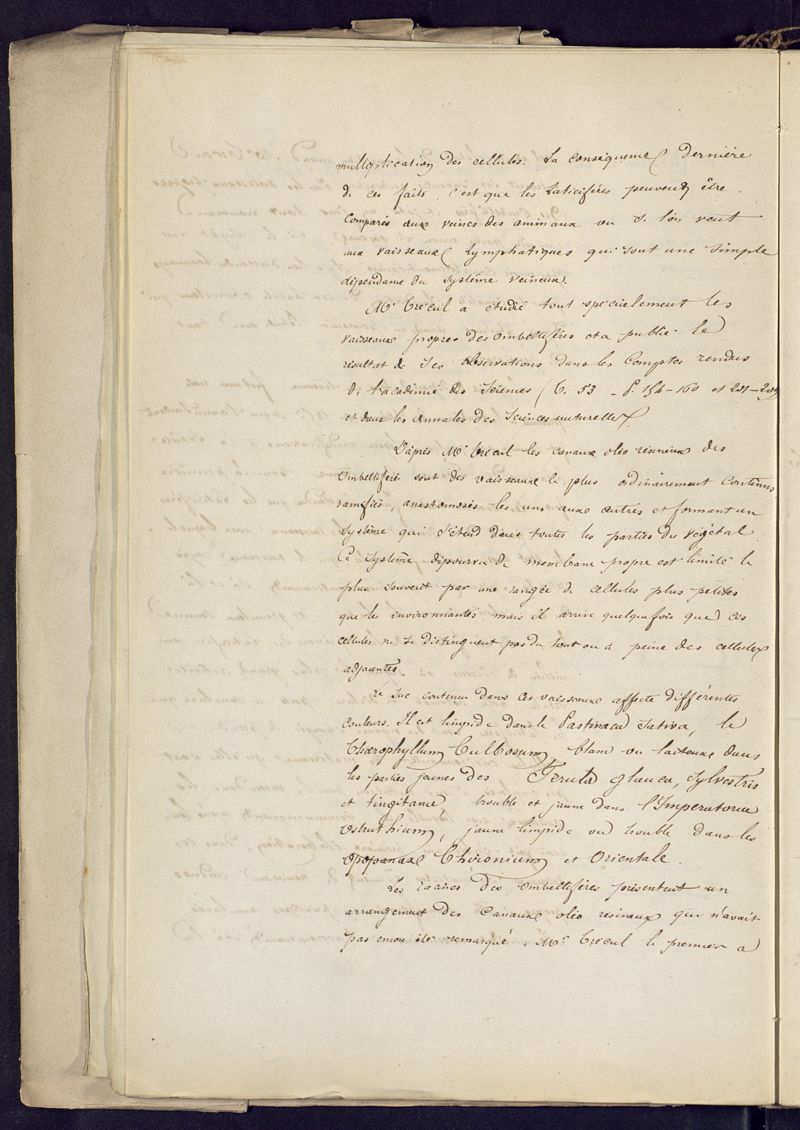 multiplication des cellules. La conséquence dernière
de ces faits c'est que les Laticifères peuvent être
Comparés aux veines des animaux ou si l'on veut
aux vaisseaux Lymphatiques qui sont une simple
dépendance du système veineux.
Mr Trécul a étudié tout spécialement les
vaisseaux propres des Ombellifères et a publié le
résultat de ses observations dans les Comptes rendus
de l'académie des Sciences (T. 53 - P. 154-160 et 201-209
et dans les annales des Sciences naturelles
D'après Mr Trécul les canaux oléo résineux des
Ombellifères sont des vaisseaux le plus ordinairement continus
ramifiés, anastomosés les uns aux autres et formant un
système qui s'étend dans toutes les parties du végétal.
Ce système dépourvu de membrane propre est limité le
plus souvent par une rangée de cellules plus petites
que les environnantes mais il arrive quelquefois que ces
cellules ne se distinguent pas du tout ou à peine des cellules
adjacentes.
Le suc contenu dans ces vaisseaux affecte différentes
couleurs. Il est limpide dans le Pastinaca Sativa, le
Chærophyllum Bulbosum, blanc ou laiteux dans
les parties jeunes des Ferula glauca, Sylvestris
et tingitana, trouble et jaune dans l'Imperatoria
Ostruthium, jaune limpide ou trouble dans les
Opopanax Chironium et Orientale.
Les racines des Ombellifères présentent un
arrangement des Canaux oléo résineux qui n'avait
pas encore été remarqué. Mr Trécul le premier a